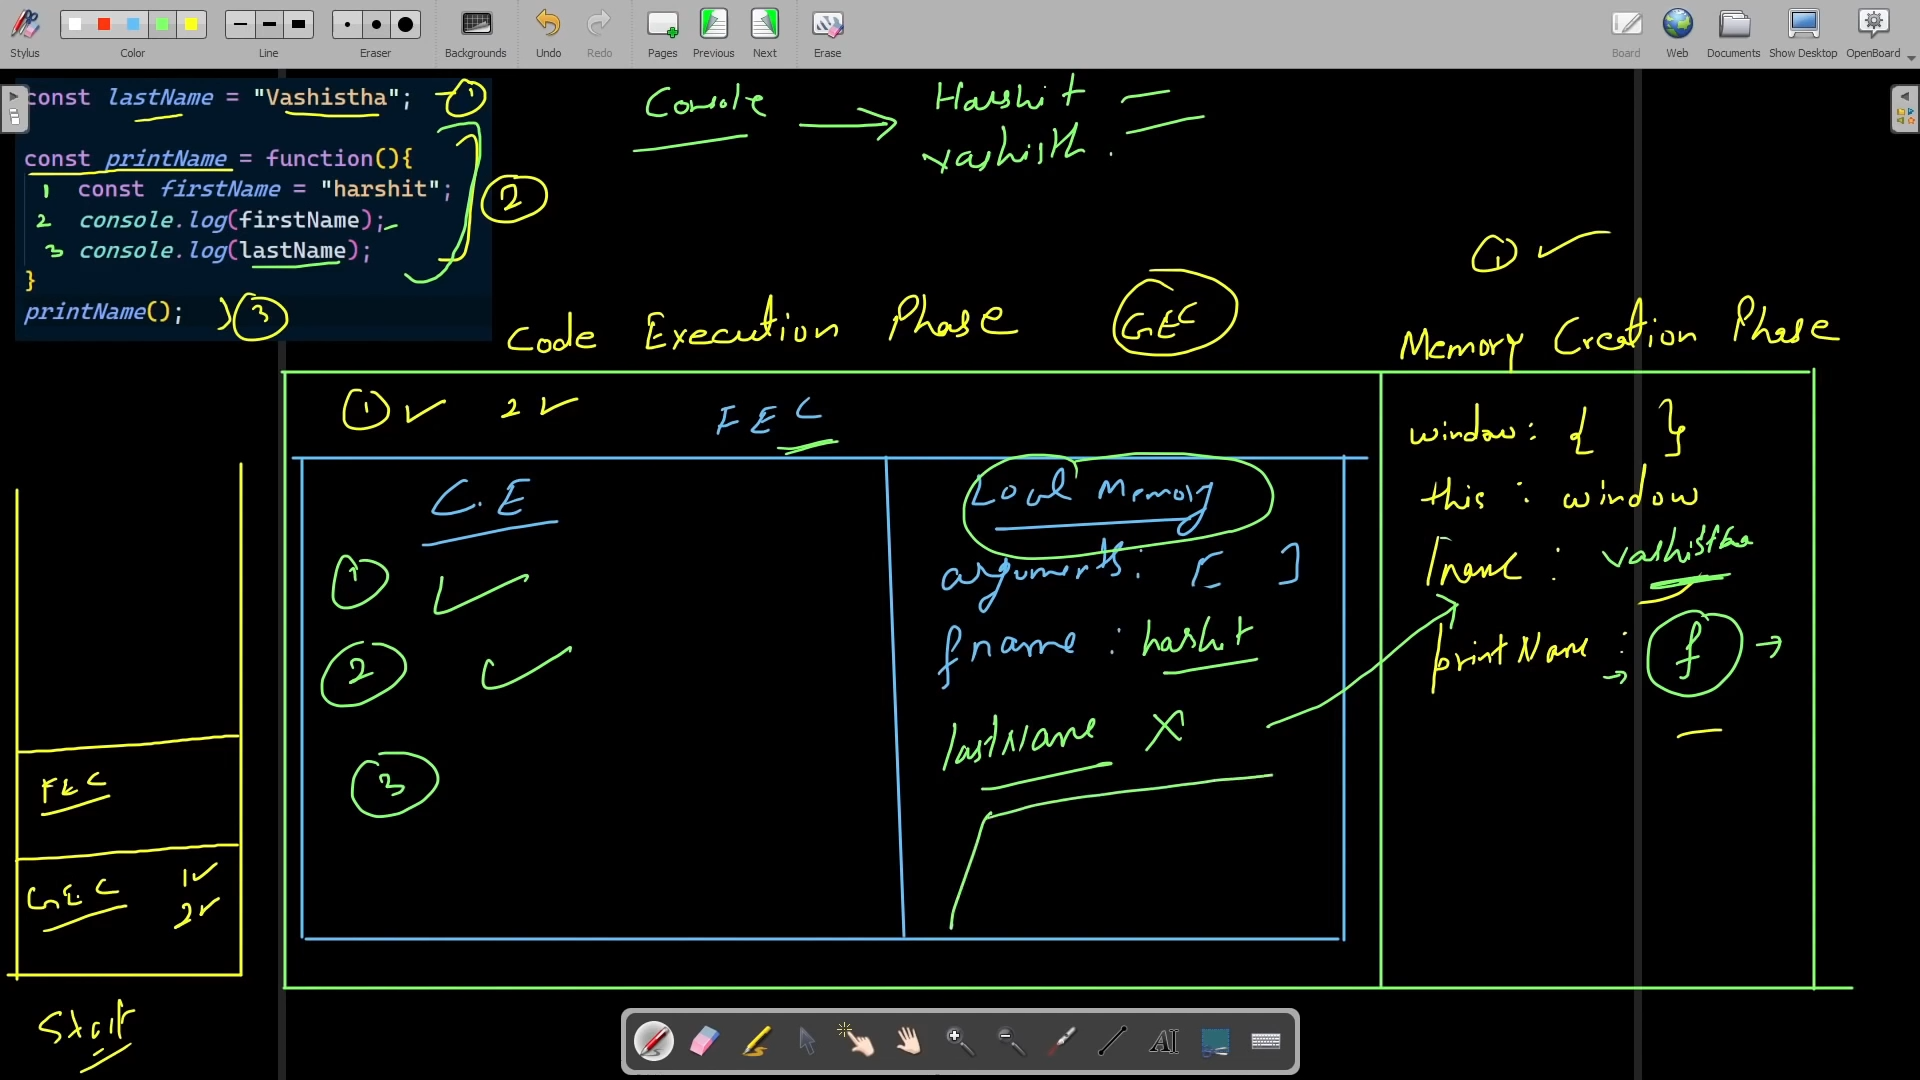 Stylus Color Line Eraser Backgrounds Undo Redo Pages Previous Next Erase Board Web Documents Show Desktop OpenBoard
const lastName = "Vashistha"; 1
const printName = function(){
1 const firstName = "harshit";
2 console.log(firstName);
3 console.log(lastName);
}
printName();
2
3
Console → Harshit
vashisth.
1 ✓
Code Execution Phase GEC
Memory Creation Phase
1 ✓ 2 ✓ FEC
C.E
1 ✓
2 ✓
3
Local Memory
arguments: [ ]
fname : hashit
lastName X
window: { }
this : window
lname : vashistha
printName : f →
FEC
GEC 1✓
2✓
AI